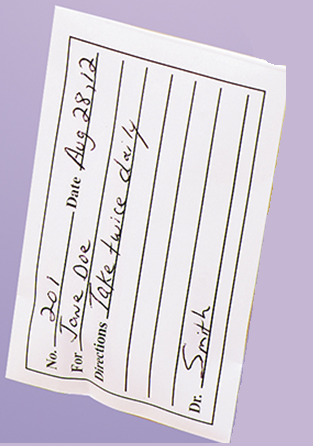 No. 201 Date Aug 28, 12
For Jane Doe
Directions Take twice daily
Dr. Smith